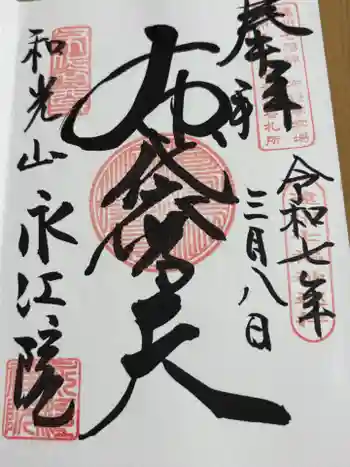 奉拝
令和七年
三月八日
布袋尊天
和光山永江院
札所